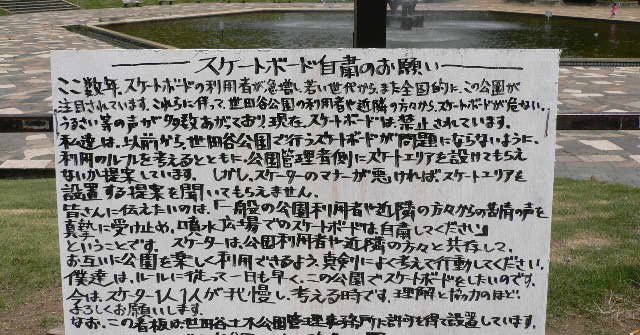 スケートボード自粛のお願い
ここ数年、スケートボードの利用者が急増し、若い世代から、また全国的に、この公園が
注目されています。これらに伴って、世田谷公園の利用者や近隣の方々から、スケートボードが危ない、
うるさい等の声が多数あがっており、現在、スケートボードは、禁止されています。
私達は、以前から、世田谷公園で行うスケートボードが問題にならないように、
利用のルールを考えるとともに、公園管理者側にスケートエリアを設けてもらえ
ないか提案しています。しかし、スケーターのマナーが悪ければスケートエリアを
設置する提案を聞いてもらえません。
皆さんに伝えたいのは、「一般の公園利用者や近隣の方々からの苦情の声を
真摯に受け止め、噴水広場でのスケートボードは自粛してください」
ということです。スケーターは、公園利用者や近隣の方々と共存して、
お互いに公園を楽しく利用できるよう、真剣によく考えて行動してください。
僕達は、ルールに従って一日も早く、この公園でスケートボードをしたいのです。
今は、スケーター1人1人が我慢し、考える時です。理解と協力のほど
よろしくお願いします。
なお、この看板は世田谷土木公園管理事務所に許可を得て設置しています。